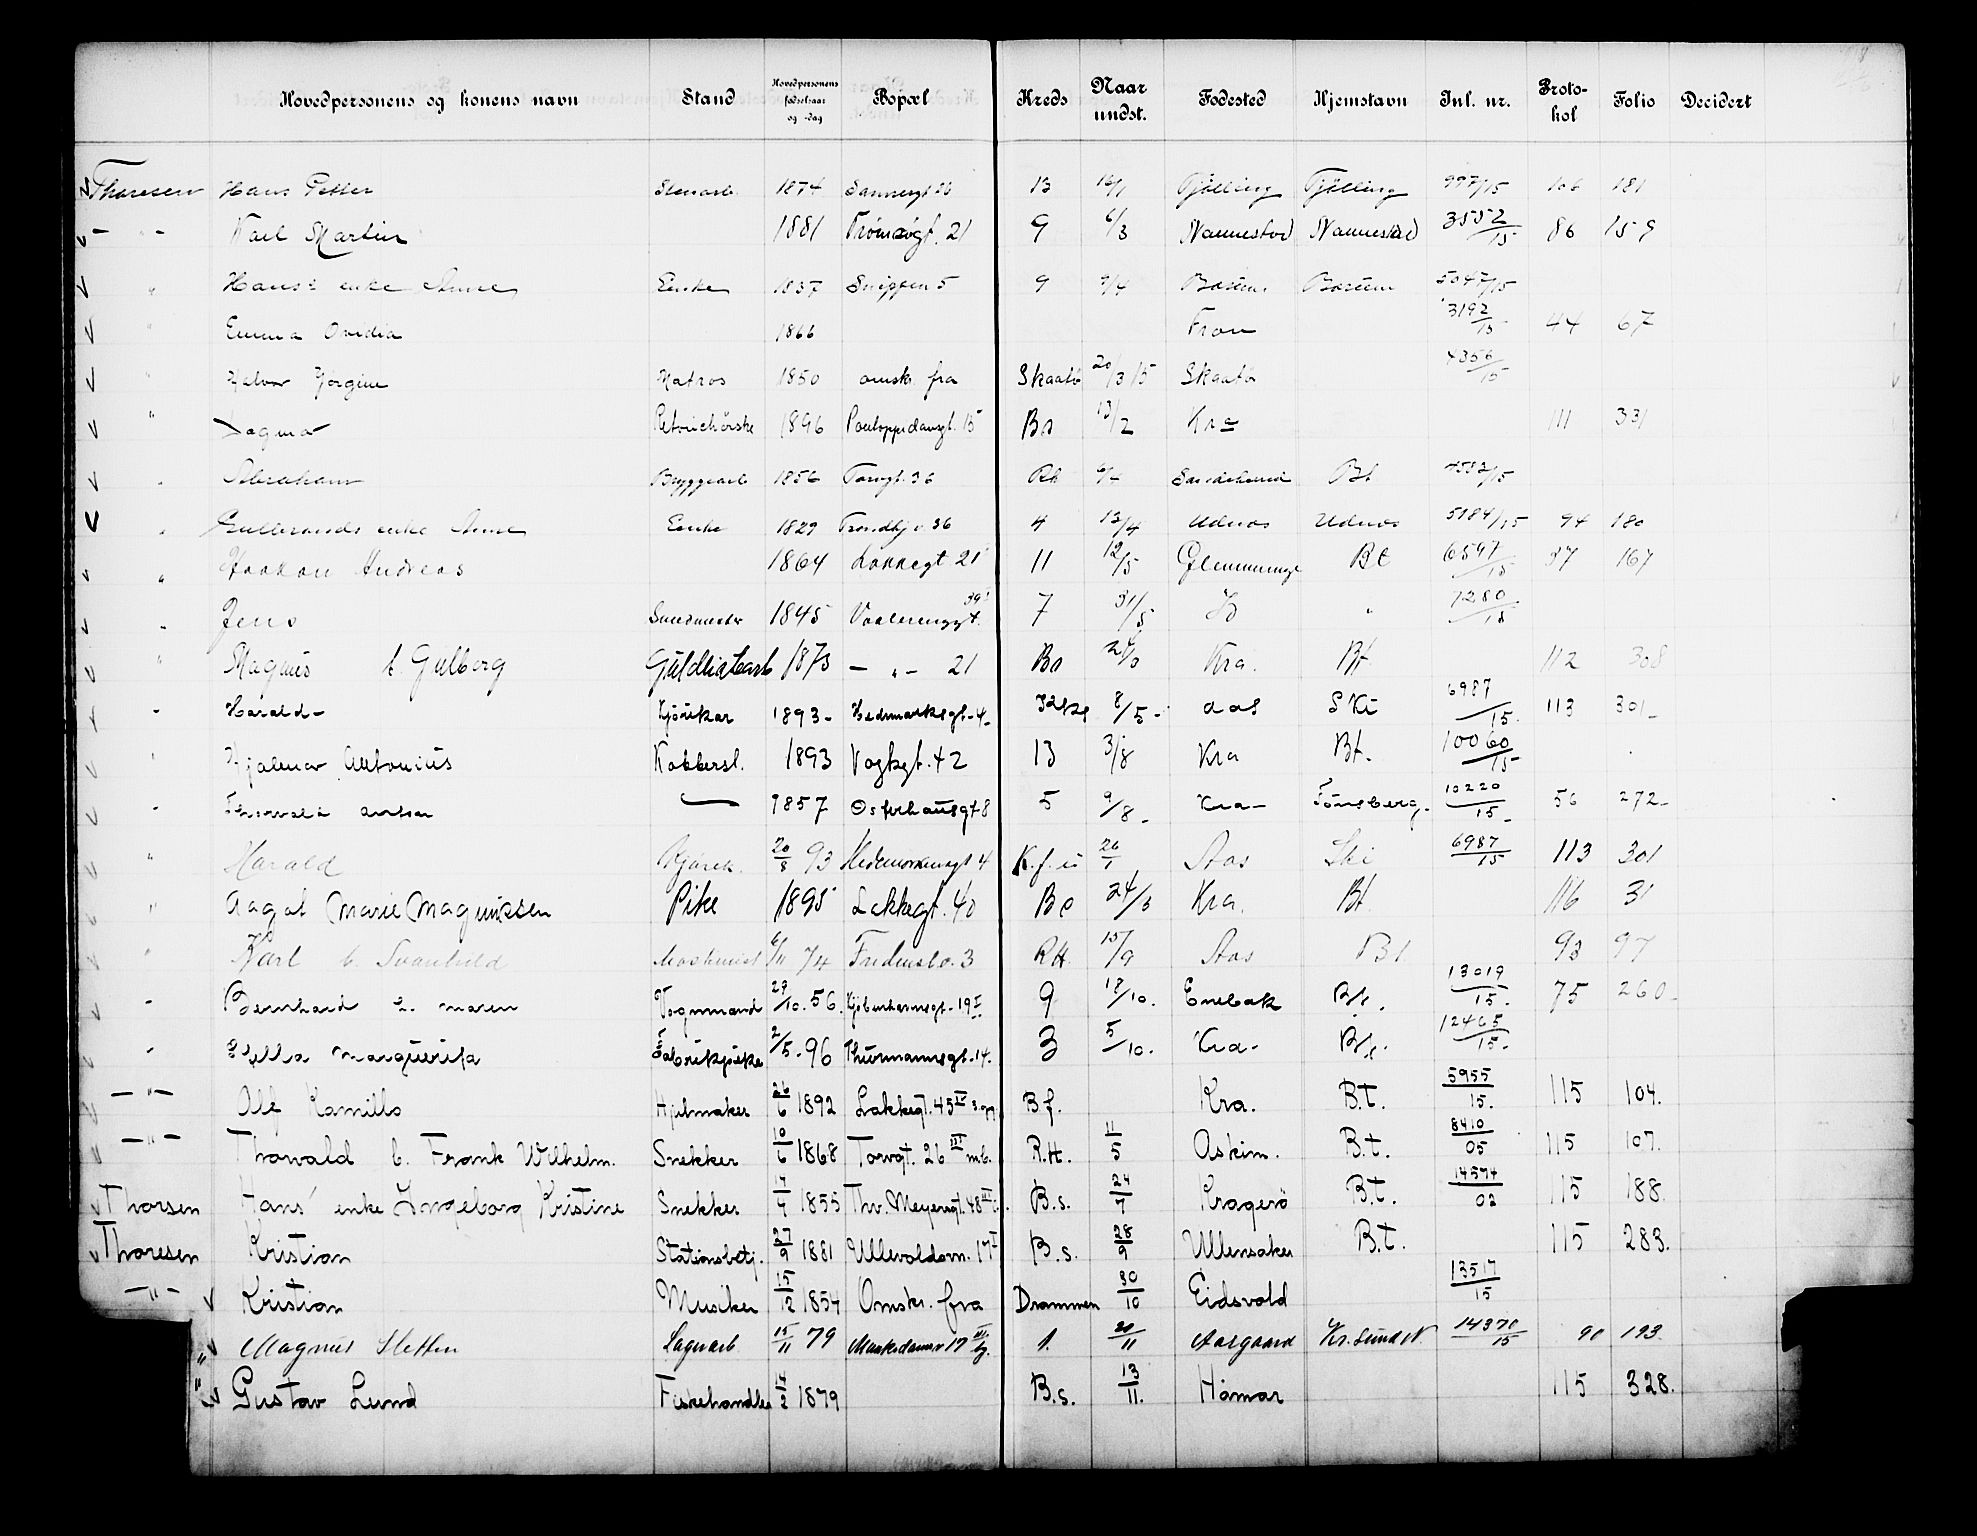 Hovedpersonens og konens navn Stand Hovedpersonens fødselsaar og -dag Bopæl Kreds Naar undst. Fødested Hjemstavn Jnl. nr. Protokol Folio Decidert
Thoresen Hans Petter Stenarb. 1874 Sannergt 13 16/1 Tjølling Tjølling 997/15 106 181
— " — Karl Martin 1881 Tromsøgt. 21 9 6/3 Nannestad Nannestad 3552/15 86 159
" Hans' enke Anne Enke 1837 Snippen 5 9 9/4 Bærum Bærum 5047/15
" Emma Ovidia 1866 Fron 3192/15 44 67
" Halvor Jørgine Matros 1850 omsk. fra Skaatø 20/3 15 Skaatø 4356/15
" Dagmar Retouchørske 1896 Pontoppidansgt. 15 Bs 13/2 Kra 111 331
" Abraham Bryggearb 1856 Torvgt. 36 Rh 6/4 Sandeherred Bt 4582/15
" Gulbrands enke Anne Enke 1829 Trondhj.v. 36 4 13/4 Udnæs Udnæs 5184/15 94 180
" Haakon Andreas 1864 Lakkegt 21 11 12/5 Glemminge Bt 6597/15 37 167
" Jens Smedmester 1845 Vaalerenggt. 39 I 7 31/5 Id " 7280/15
" Magnus f. Gulborg Guldlistarb 1873 — " — 21 Bs Kra. Bt 112 308
" Harald - 1893 - Hedmarksgt - 4 - 8/5 - Aas Ski 6987/15. 113 301 -
" Hjalmar Antonius Kobbersl. 1893 Vogtsgt. 42 13 3/8 Kra Bt. 10060/15
" Thorvald Anton — 1857 Osterhausgt 8 5 9/8 - Kra - Tønsberg. 10220/15 - 56 272 -
" Harald 20/8 93 Hedemarkensgt 4 K.f. is 26/1 Aas Ski 6987/15 113 301
" Aagot Marie Magnussen Pike 1895 Lakkegt. 40 Bs 24/3 Kra. Bt 116 31
" Karl f. Svanhild Maskinist 6/11 74 Fredensbo. 3 R.H. 15/9 Aas Bt 93 97
" Bernhard f. Maren Vognmand 29/10. 56. Kjøbenhavnsgt. 19 I 9 12/10. Enebak B/t. 13019/15. 75 260 -
" Stella Marguerita Fabrikpike 2/5 - 96 Thurmannsgt. 14. 3 5/10. Kra - B/t. 12465/15.
— " — Alf Kamillo Hjulmaker 26/6 1892 Lakkegt. 45 IV B f. Kra. B.t. 5955/15. 115 104.
— " — Thorvald f. Frank Wilhelm. Snekker 10/6 1868 Torvgt. 26 III m.b. R.H. 11/5 Askim. B.t. 8410/05 115 107.
Thorsen Hans' enke Ingeborg Kristine Snekker 17/7 1855 Thv. Meyersgt. 48 B.s. 24/7 Kragerö B.t. 14574/02 115 188.
Thoresen Kristian Stationsbetj. 27/9 1881 Ullevoldsvn. 17 I B.s. 28/9 Ullensaker B.t. 115 283.
— " — Kristian Musiker 15/12 1854 Omskr. fra Drammen 30/10 Eidsvold 13517/15
" Magnus Steffen Lagerarb 15/11 79 Munkedamsv 17 1. 20/11 Aargaard Kr.sund N 14370/15 90 193
" Gustav Lund Fiskehandler 14/2 1879 B.s. 13/11. Hamar 115 328.